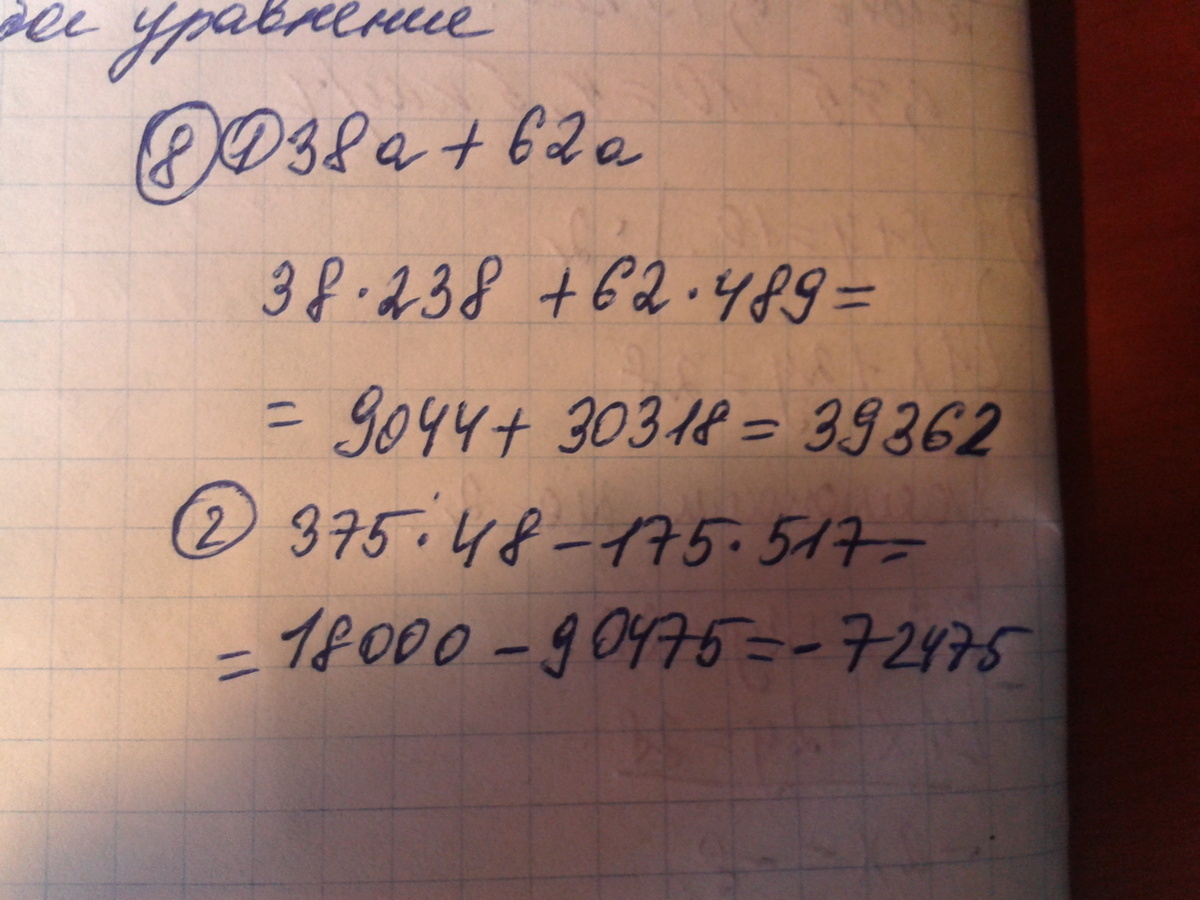 уравнение
8 1 38a + 62a
38 · 238 + 62 · 489 =
= 9044 + 30318 = 39362
2 375 · 48 - 175 · 517 =
= 18000 - 90475 = - 72475